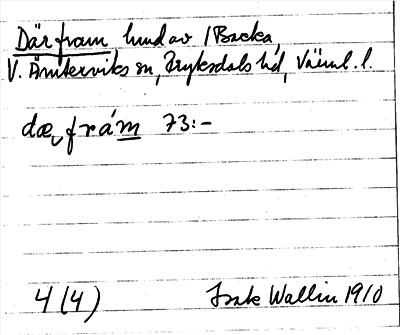 Där fram hmd av /Backa,
V. Ämterviks sn, Fryksdals hd, Värml. l.
dæ fra´m 73:-
4 (4) Isak Wallin 1910